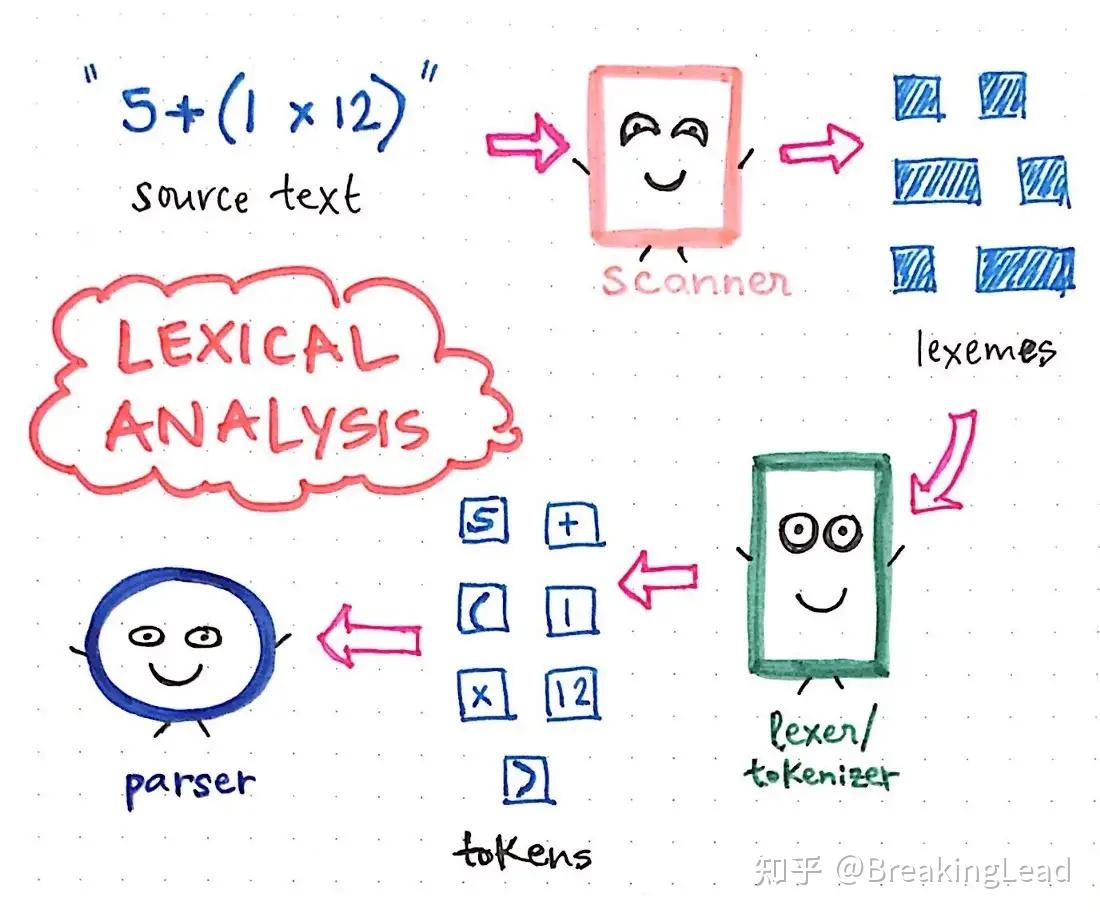 "5+(1 x 12)"
source text
scanner
lexemes
LEXICAL
ANALYSIS
5 +
( 1
x 12
)
tokens
lexer/
tokenizer
parser
知乎 @BreakingLead